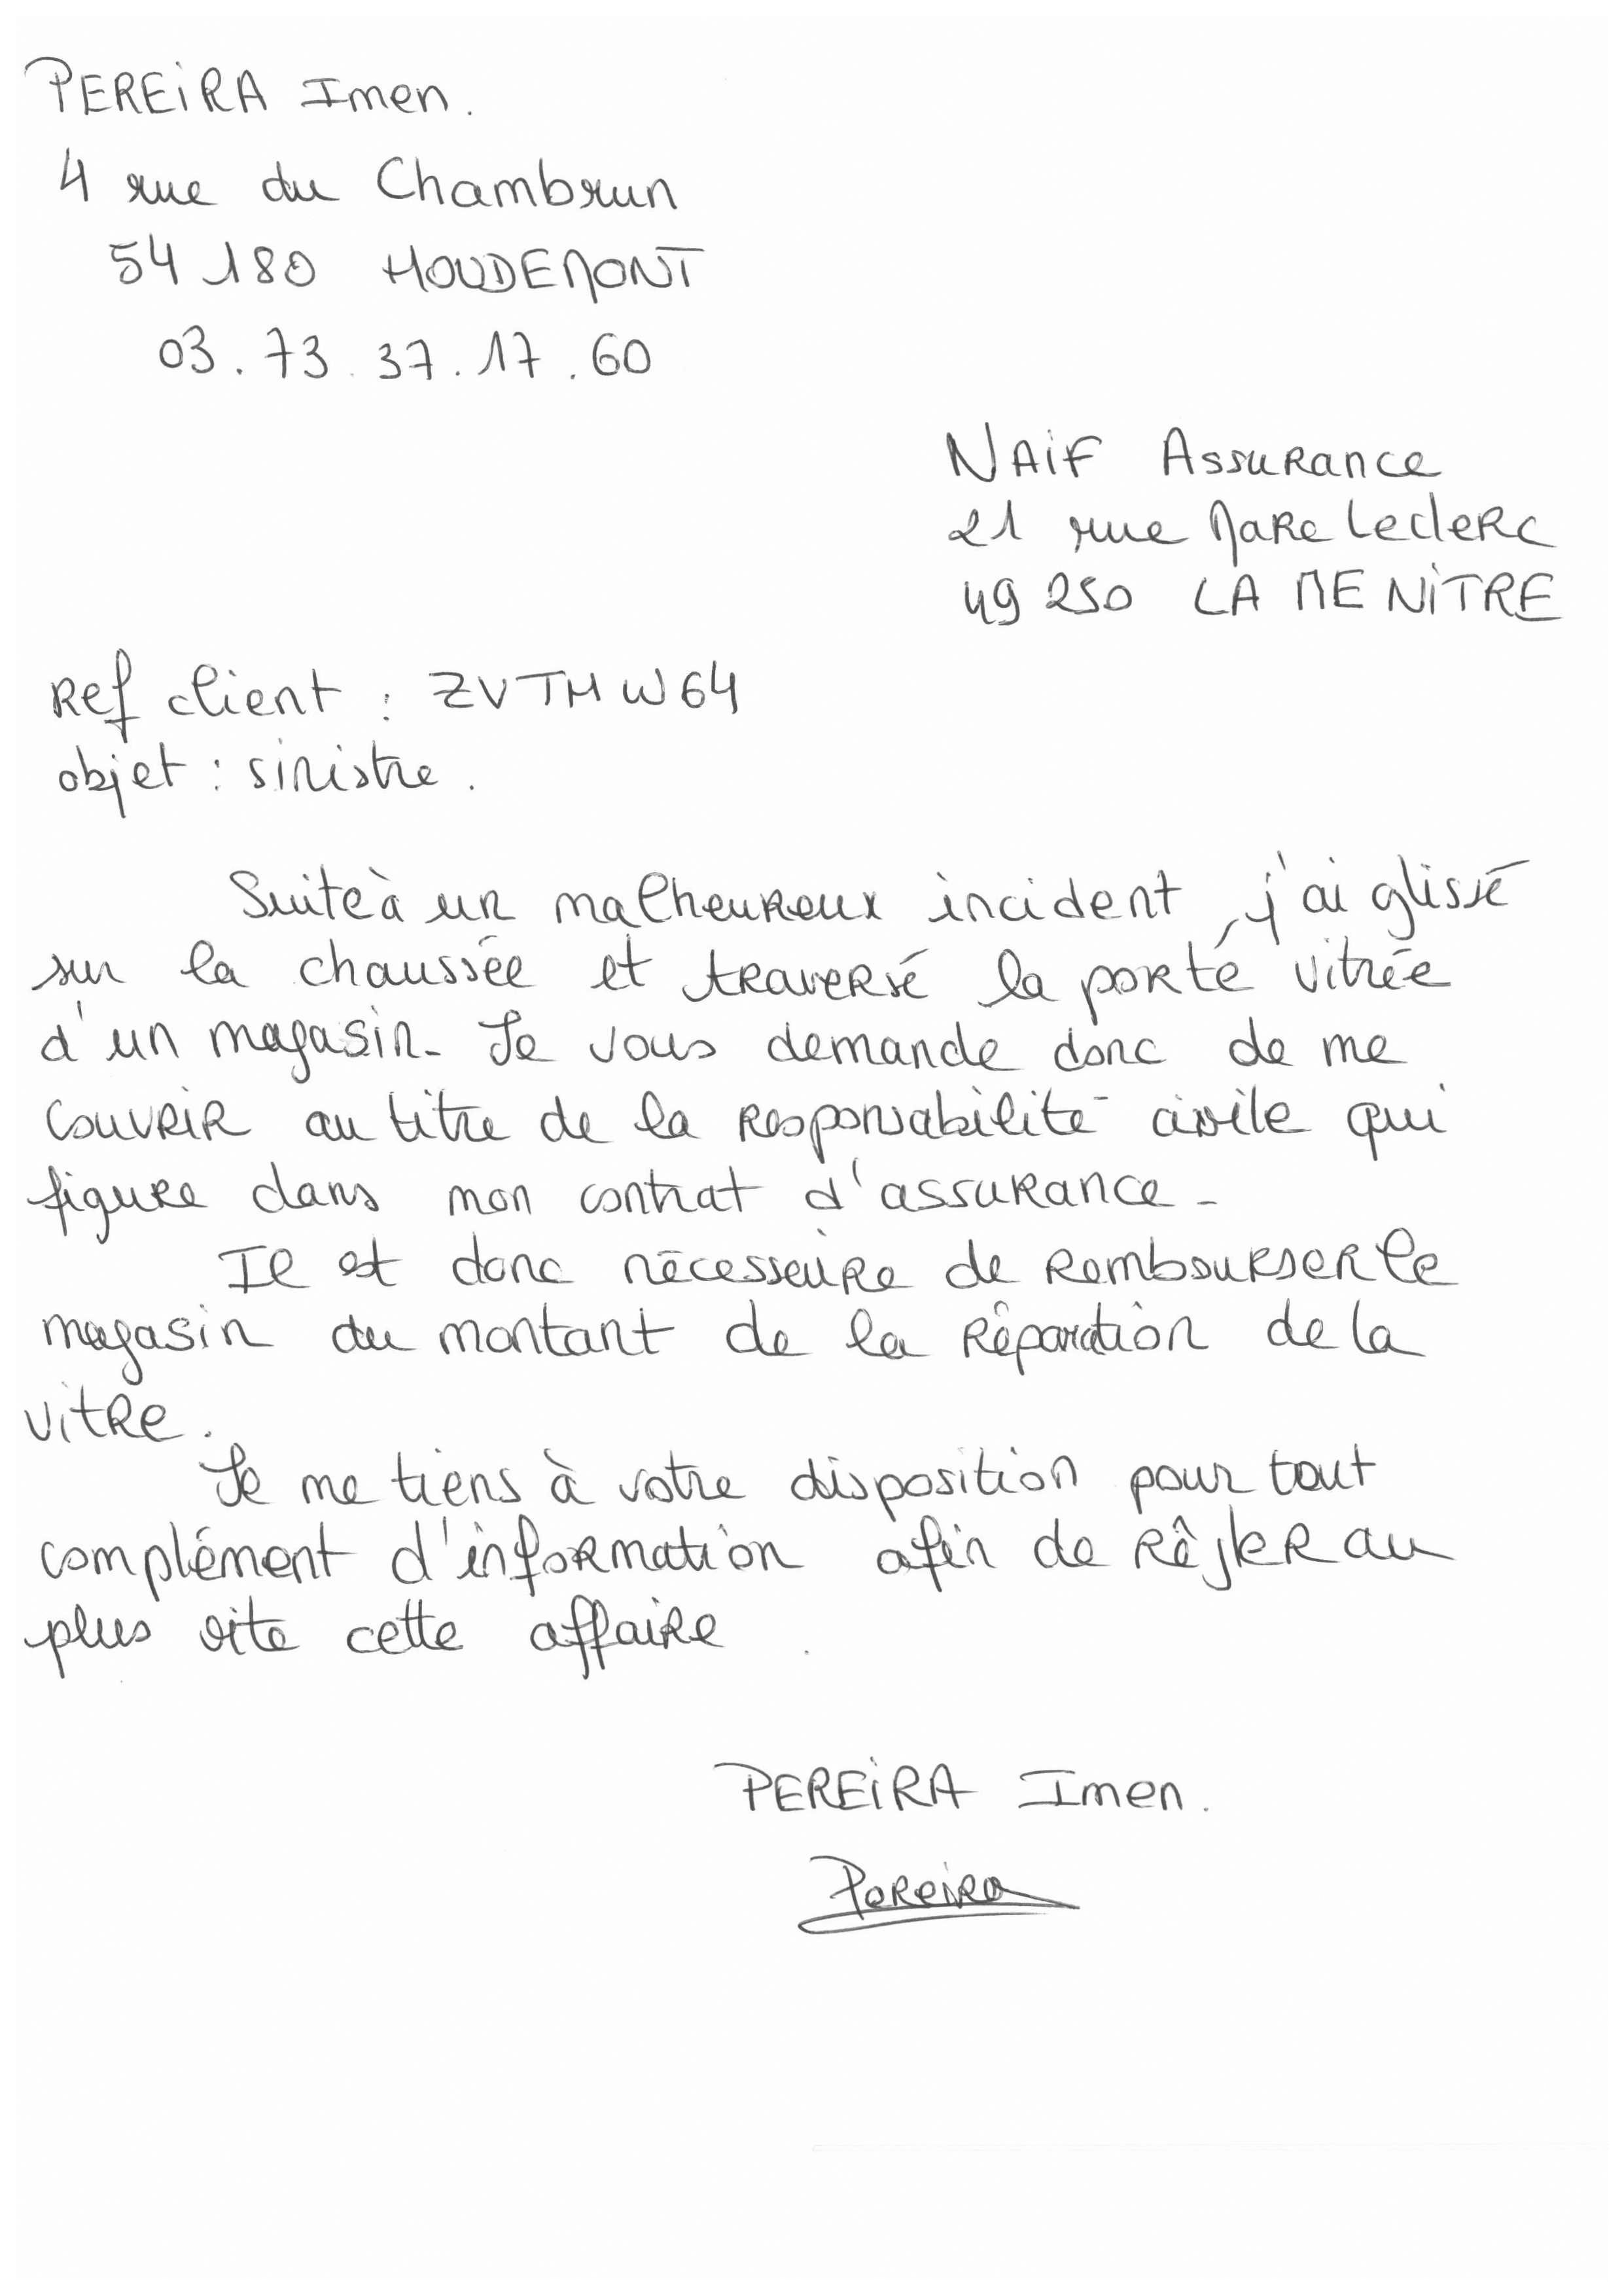 PEREIRA Imen.
4 rue du Chambrun
54 180 HOUDEMONT
03.73.37.17.60
NAIF Assurance
21 rue Marc Leclerc
49 250 LA MENITRE
Ref client : ZVTHW64
objet : sinistre.
Suite à un malheureux incident, j'ai glissé
sur la chaussée et traversé la porte vitrée
d'un magasin. Je vous demande donc de me
couvrir au titre de la responsabilité civile qui
figure dans mon contrat d'assurance.
Il est donc nécessaire de rembourser le
magasin du montant de la réparation de la
vitre.
Je me tiens à votre disposition pour tout
complément d'information afin de régler au
plus vite cette affaire.
PEREIRA Imen.
Pereira